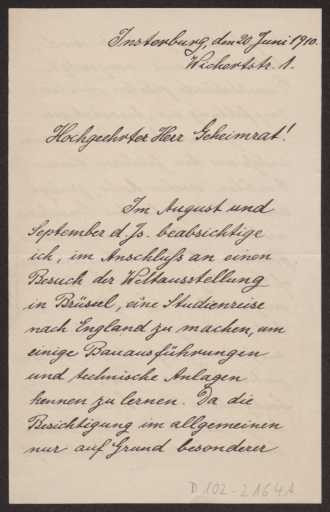 Insterburg, den 20 Juni 1910.
Wichertstr. 1.
Hochgeehrter Herr Geheimrat!
Im August und
September d. Js. beabsichtige
ich, im Anschluß an einen
Besuch der Weltausstellung
in Brüssel, eine Studienreise
nach England zu machen, um
einige Bauausführungen
und technische Anlagen
kennen zu lernen. Da die
Besichtigung im allgemeinen
nur auf Grund besonderer
D 102-2164A